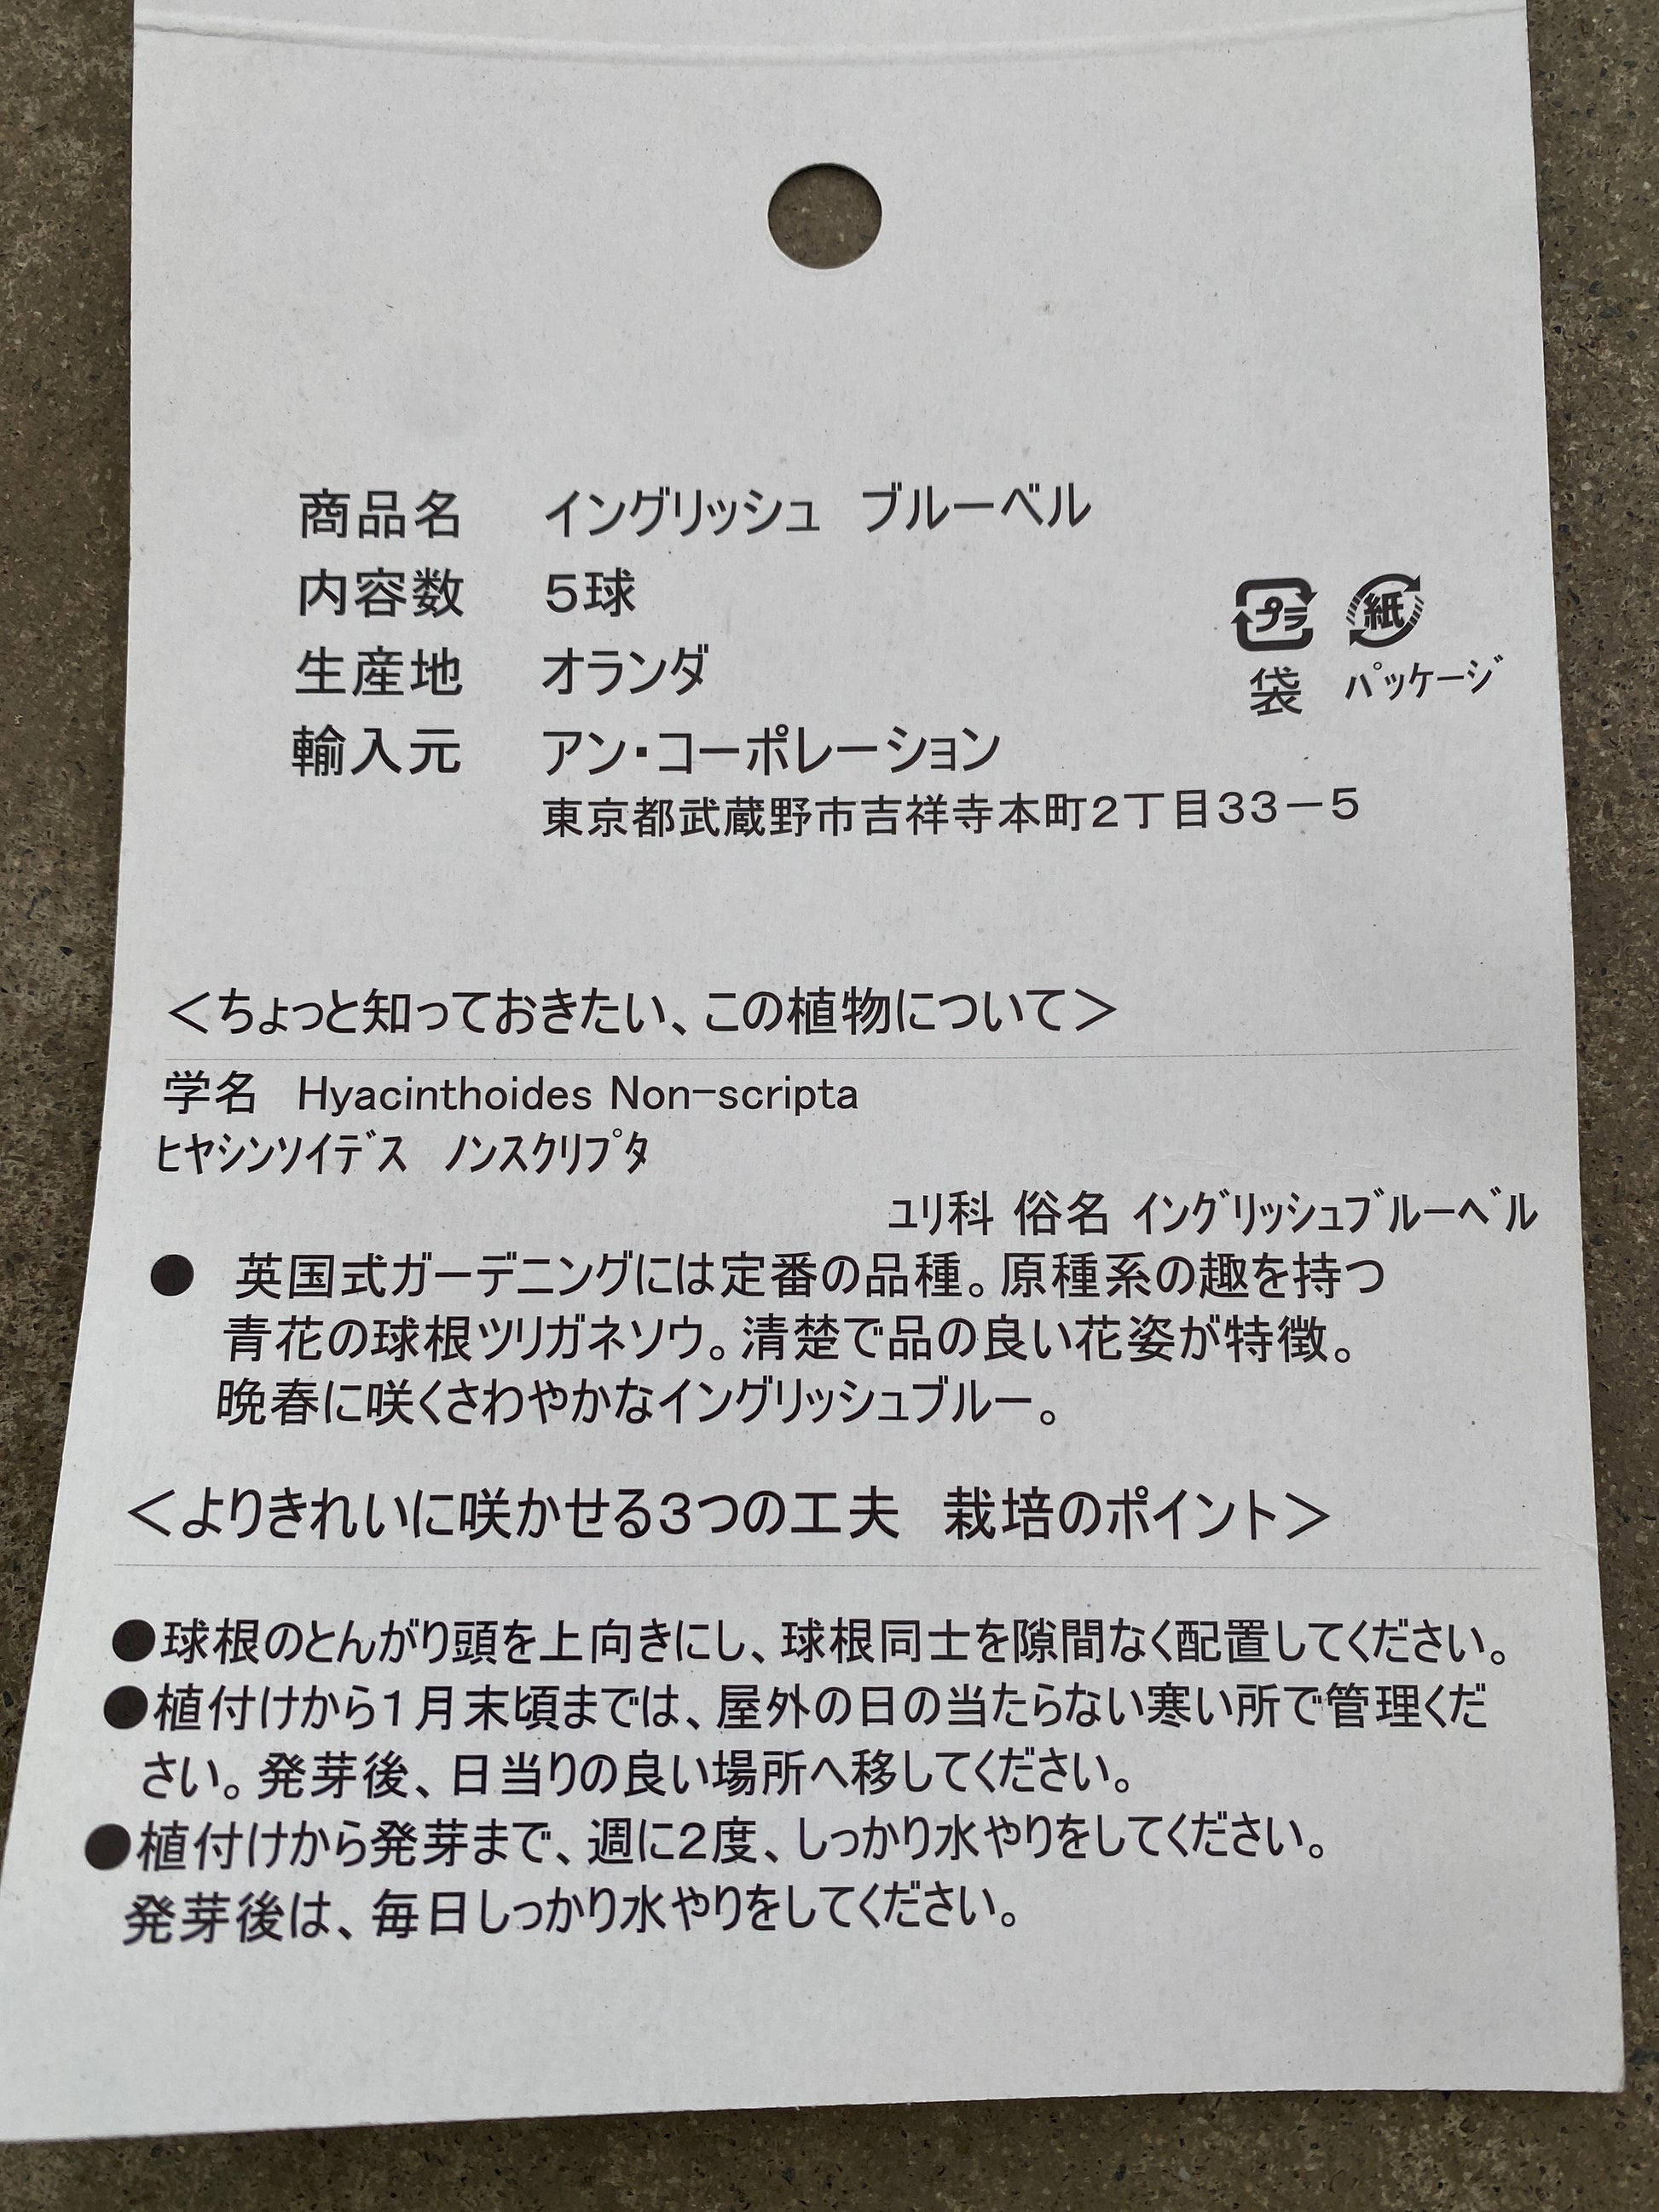 商品名　イングリッシュ　ブルーベル
内容数　５球
生産地　オランダ
プラ　紙
袋　ﾊﾟｯｹｰｼﾞ
輸入元　アン・コーポレーション
東京都武蔵野市吉祥寺本町２丁目３３－５
＜ちょっと知っておきたい、この植物について＞
学名　Hyacinthoides Non-scripta
ﾋﾔｼﾝｿｲﾃﾞｽ　ﾉﾝｽｸﾘﾌﾟﾀ
ﾕﾘ科 俗名 ｲﾝｸﾞﾘｯｼｭﾌﾞﾙｰﾍﾞﾙ
●　英国式ガーデニングには定番の品種。原種系の趣を持つ
青花の球根ツリガネソウ。清楚で品の良い花姿が特徴。
晩春に咲くさわやかなイングリッシュブルー。
＜よりきれいに咲かせる３つの工夫　栽培のポイント＞
●球根のとんがり頭を上向きにし、球根同士を隙間なく配置してください。
●植付けから１月末頃までは、屋外の日の当たらない寒い所で管理くだ
さい。発芽後、日当りの良い場所へ移してください。
●植付けから発芽まで、週に２度、しっかり水やりをしてください。
発芽後は、毎日しっかり水やりをしてください。